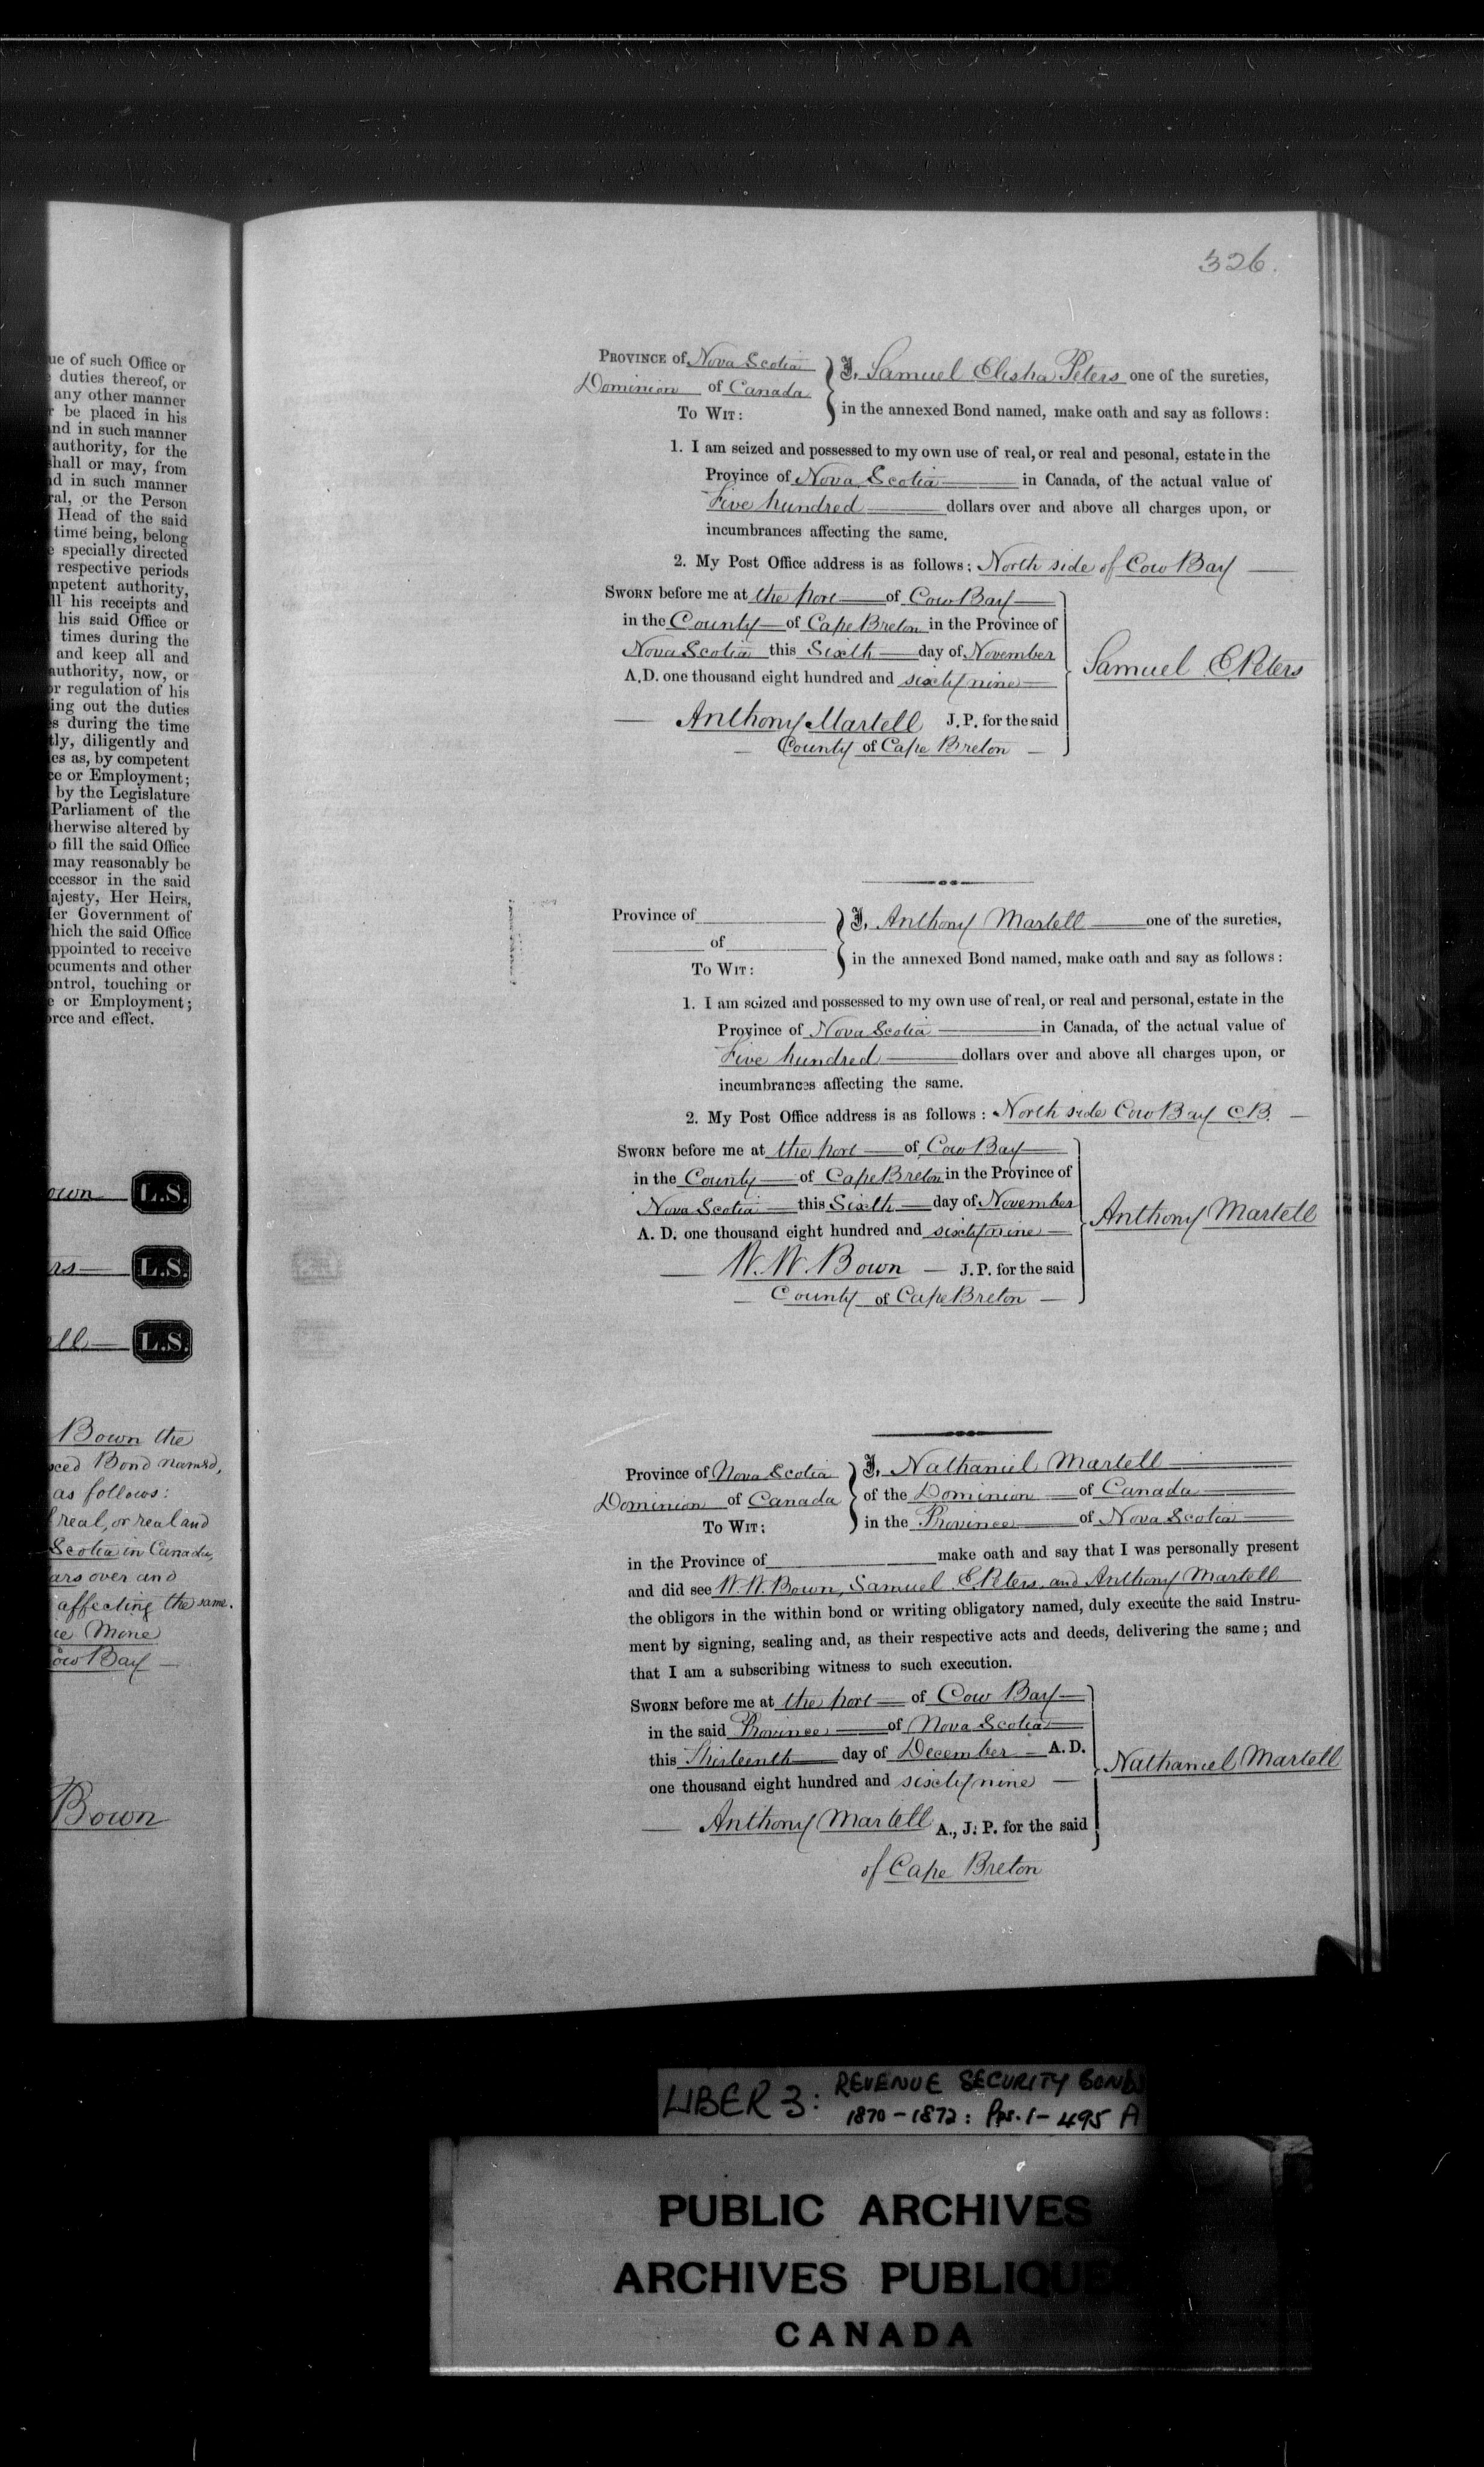 ue of such Office or
duties thereof, or
any other manner
r be placed in his
nd in such manner
authority, for the
hall or may, from
d in such manner
ral, or the Person
Head of the said
time being, belong
e specially directed
respective periods
mpetent authority,
ll his receipts and
his said Office or
times during the
and keep all and
authority, now, or
or regulation of his
ing out the duties
s during the time
tly, diligently and
es as, by competent
ce or Employment;
by the Legislature
Parliament of the
therwise altered by
o fill the said Office
may reasonably be
ccessor in the said
ajesty, Her Heirs,
er Government of
hich the said Office
appointed to receive
ocuments and other
ontrol, touching or
e or Employment;
orce and effect.
own L.S.
rs L.S.
ell L.S.
Bown the
xed Bond named,
as follows:
f real, or real and
Scotia in Canada,
ars over and
affecting the same.
ce Mine
ow Bay
Bown
326.
PROVINCE of Nova Scotia
Dominion of Canada
TO WIT:
I, Samuel Elisha Peters one of the sureties,
in the annexed Bond named, make oath and say as follows:
1. I am seized and possessed to my own use of real, or real and pesonal, estate in the
Province of Nova Scotia in Canada, of the actual value of
Five hundred dollars over and above all charges upon, or
incumbrances affecting the same.
2. My Post Office address is as follows: North side of Cow Bay
SWORN before me at the port of Cow Bay
in the County of Cape Breton in the Province of
Nova Scotia this Sixth day of November
A.D. one thousand eight hundred and sixty nine
Samuel E Peters
Anthony Martell J.P. for the said
County of Cape Breton
Province of
of
TO WIT:
I, Anthony Martell one of the sureties,
in the annexed Bond named, make oath and say as follows:
1. I am seized and possessed to my own use of real, or real and personal, estate in the
Province of Nova Scotia in Canada, of the actual value of
Five hundred dollars over and above all charges upon, or
incumbrances affecting the same.
2. My Post Office address is as follows: North side Cow Bay C.B.
SWORN before me at the port of Cow Bay
in the County of Cape Breton in the Province of
Nova Scotia this Sixth day of November
A. D. one thousand eight hundred and sixty nine
Anthony Martell
W. W. Bown J.P. for the said
County of Cape Breton
Province of Nova Scotia
Dominion of Canada
TO WIT:
I, Nathaniel Martell
of the Dominion of Canada
in the Province of Nova Scotia
in the Province of make oath and say that I was personally present
and did see W. W. Bown, Samuel E Peters and Anthony Martell
the obligors in the within bond or writing obligatory named, duly execute the said Instru-
ment by signing, sealing and, as their respective acts and deeds, delivering the same; and
that I am a subscribing witness to such execution.
SWORN before me at the port of Cow Bay
in the said Province of Nova Scotia
this Thirteenth day of December A. D.
one thousand eight hundred and sixty nine
Nathaniel Martell
Anthony Martell A., J. P. for the said
of Cape Breton
LIBER 3: REVENUE SECURITY BONDS
1870-1872: Pps. 1-495 A
PUBLIC ARCHIVES
ARCHIVES PUBLIQUES
CANADA